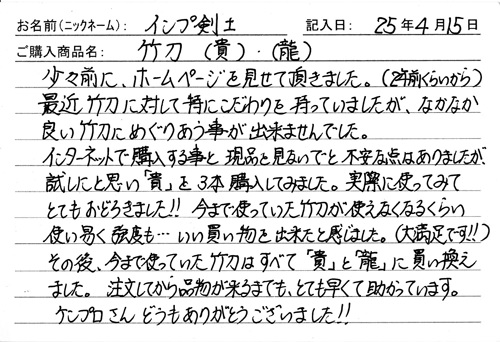 お名前(ニックネーム): インプ剣士 記入日: 25年4月15日
ご購入商品名: 竹刀 (貴)・(龍)
少々前に、ホームページを見せて頂きました。(2年前くらいから)
最近竹刀に対して特にこだわりを持っていましたが、なかなか
良い竹刀にめぐりあう事が出来ませんでした。
インターネットで購入する事と現品を見ないでと不安な点はありましたが、
試したと思い「貴」を3本購入してみました。実際に使ってみて
とてもおどろきました!! 今まで使っていた竹刀が使えなくなるくらい
使い易く強度も…いい買い物を出来たと感じました。(大満足です!!)
その後、今まで使っていた竹刀はすべて「貴」と「龍」に買い換え
ました。注文してから品物が来るまでも、とても早くて助かっています。
ケンプロさんどうもありがとうございました!!